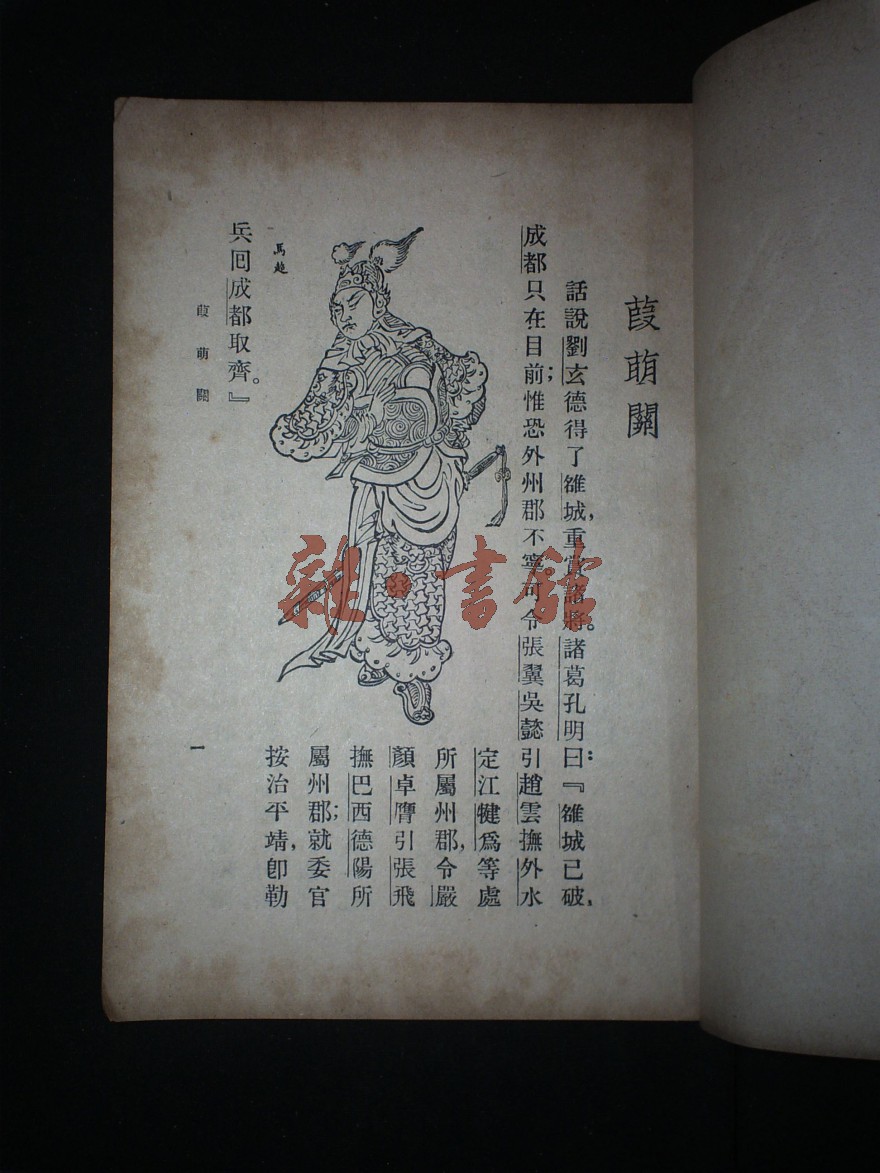 葭萌關
話說劉玄德得了雒城,重賞諸將。諸葛孔明曰:『雒城已破,
成都只在目前;惟恐外州郡不寧可令張翼吳懿引趙雲撫外水
定江犍爲等處
所屬州郡,令嚴
顏卓膺引張飛
撫巴西德陽所
屬州郡;就委官
按治平靖,卽勒
馬超
兵囘成都取齊。』
葭萌關
一
雜·書館